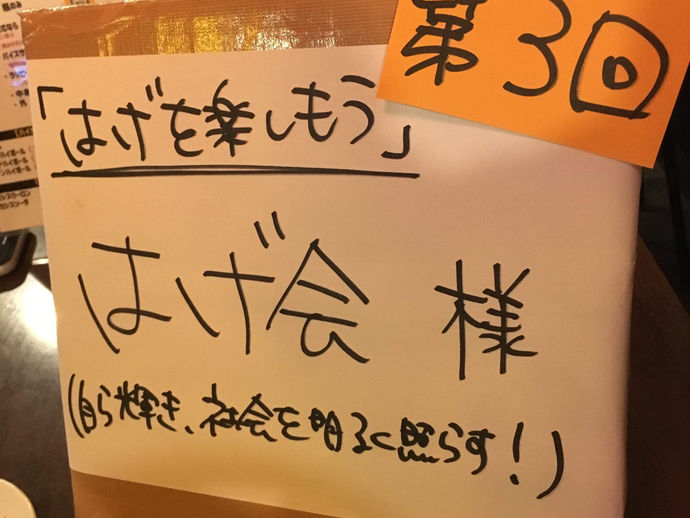 第3回
「はげを楽しもう」
はげ会 様
(自ら輝き、社会を明るく照らす!)